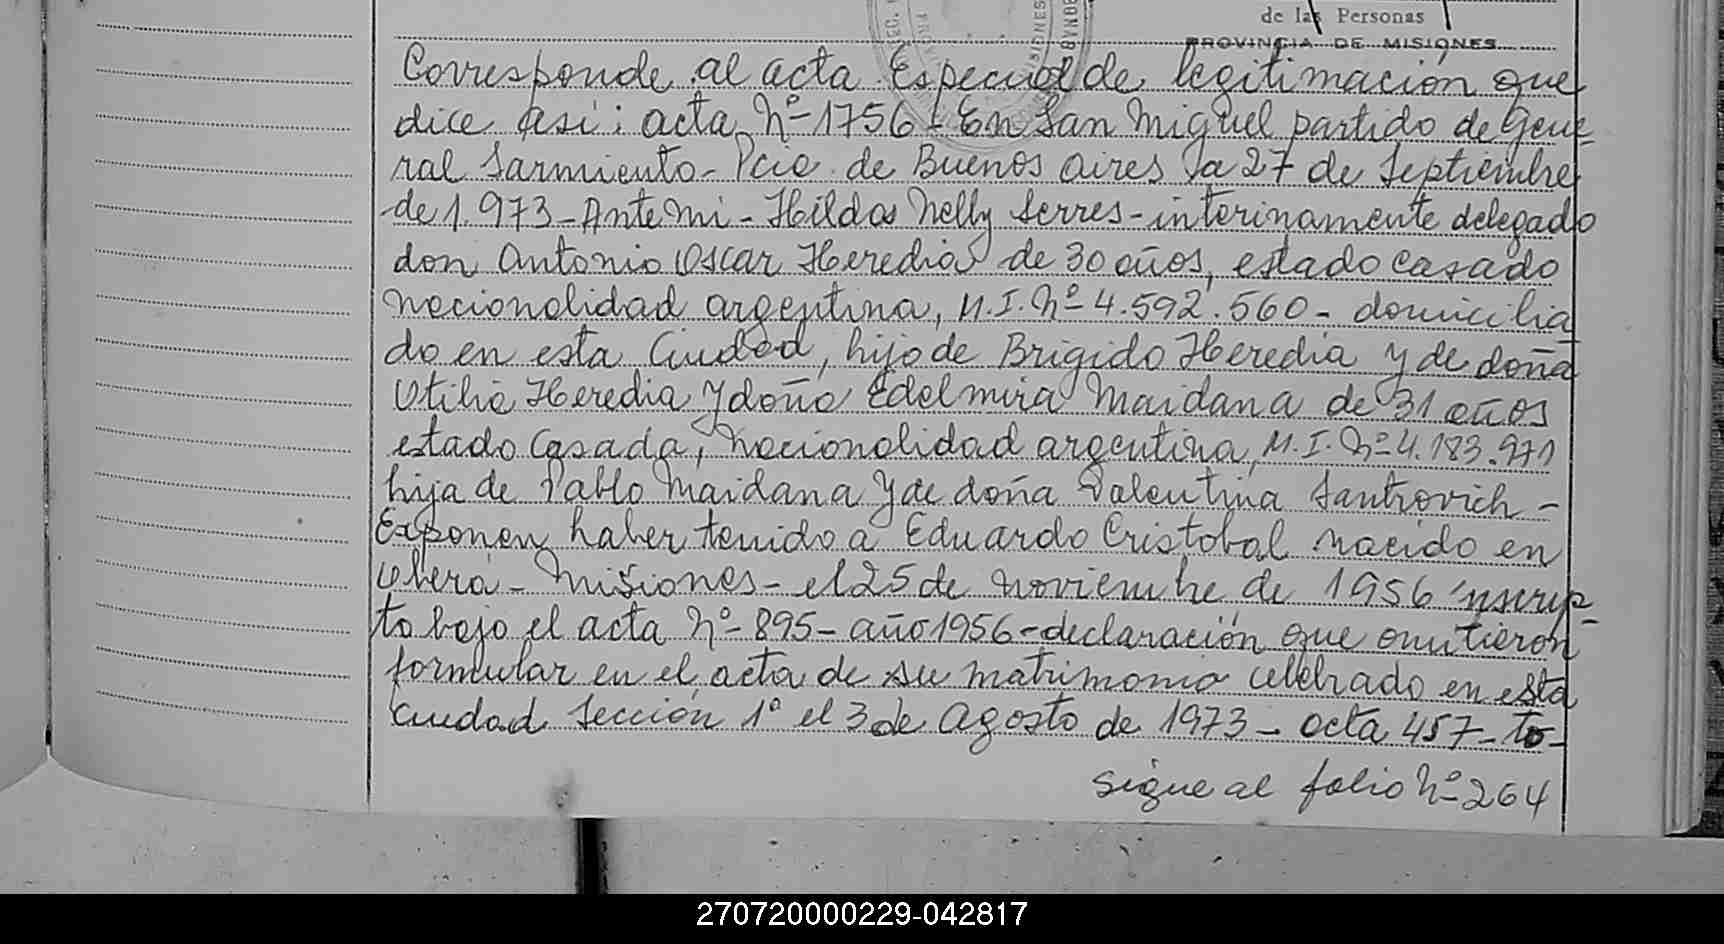 de las Personas
PROVINCIA DE MISIONES
Corresponde al acta Especial de legitimación que
dice así: acta Nº 1756 - En San Miguel partido de Gene-
ral Sarmiento - Pcia. de Buenos Aires a 27 de Septiembre
de 1.973 - Ante mi - Hilda Nelly Serres - interinamente delegado
don Antonio Oscar Heredia de 30 años, estado casado
nacionalidad argentina, M.I. Nº 4.592.560 - domicilia
do en esta Ciudad, hijo de Brigido Heredia y de doña
Otilia Heredia y doña Edelmira Maidana de 31 años
estado Casada, nacionalidad argentina, M.I. Nº 4.183.971
hija de Pablo Maidana y de doña Valentina Santrovich -
Exponen haber tenido a Eduardo Cristobal nacido en
Oberá - Misiones - el 25 de noviembre de 1956 inscrip-
to bajo el acta Nº 895 - año 1956 - declaración que omitieron
formular en el acta de su matrimonio celebrado en esta
ciudad Sección 1º el 3 de Agosto de 1973 - acta 457 - to-
sigue al folio Nº 264
270720000229-042817